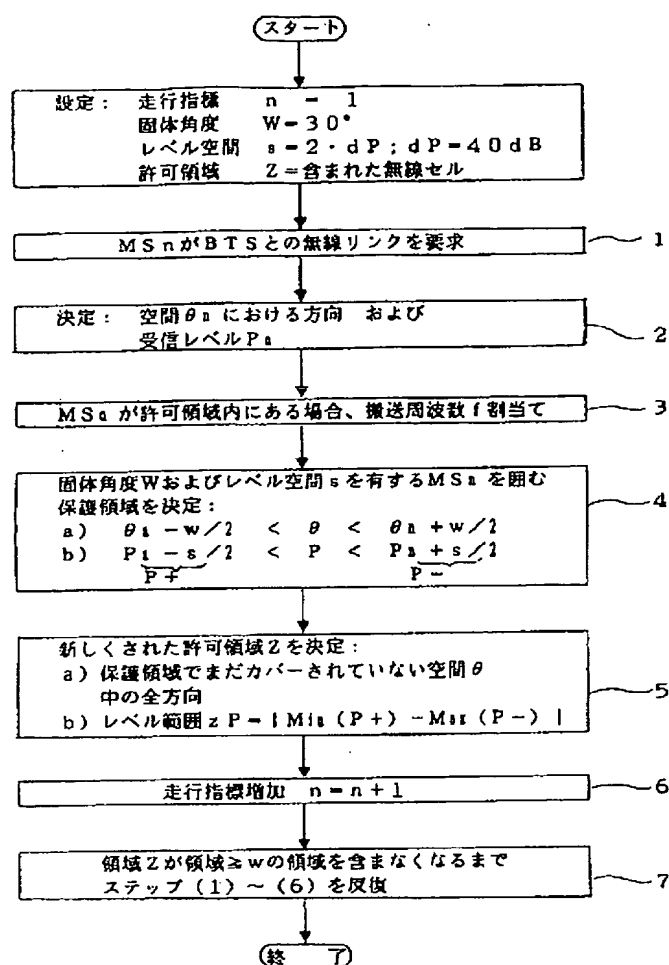 スタート
設定： 走行指標 n = 1
固体角度 W=30°
レベル空間 s=2・dP；dP=40dB
許可領域 Z=含まれた無線セル
MSnがBTSとの無線リンクを要求
1
決定： 空間θnにおける方向 および
受信レベルPn
2
MSnが許可領域内にある場合、搬送周波数f割当て
3
固体角度Wおよびレベル空間sを有するMSnを囲む
保護領域を決定：
a） θn－w／2 ＜ θ ＜ θn＋w／2
b） Pn－s／2 ＜ P ＜ Pn＋s／2
P＋ P－
4
新しくされた許可領域Zを決定：
a）保護領域でまだカバーされていない空間θ
中の全方向
b）レベル範囲zP＝|Min（P＋）－Max（P－）|
5
走行指標増加 n＝n＋1
6
領域Zが領域≧wの領域を含まなくなるまで
ステップ（1）～（6）を反復
7
終 了